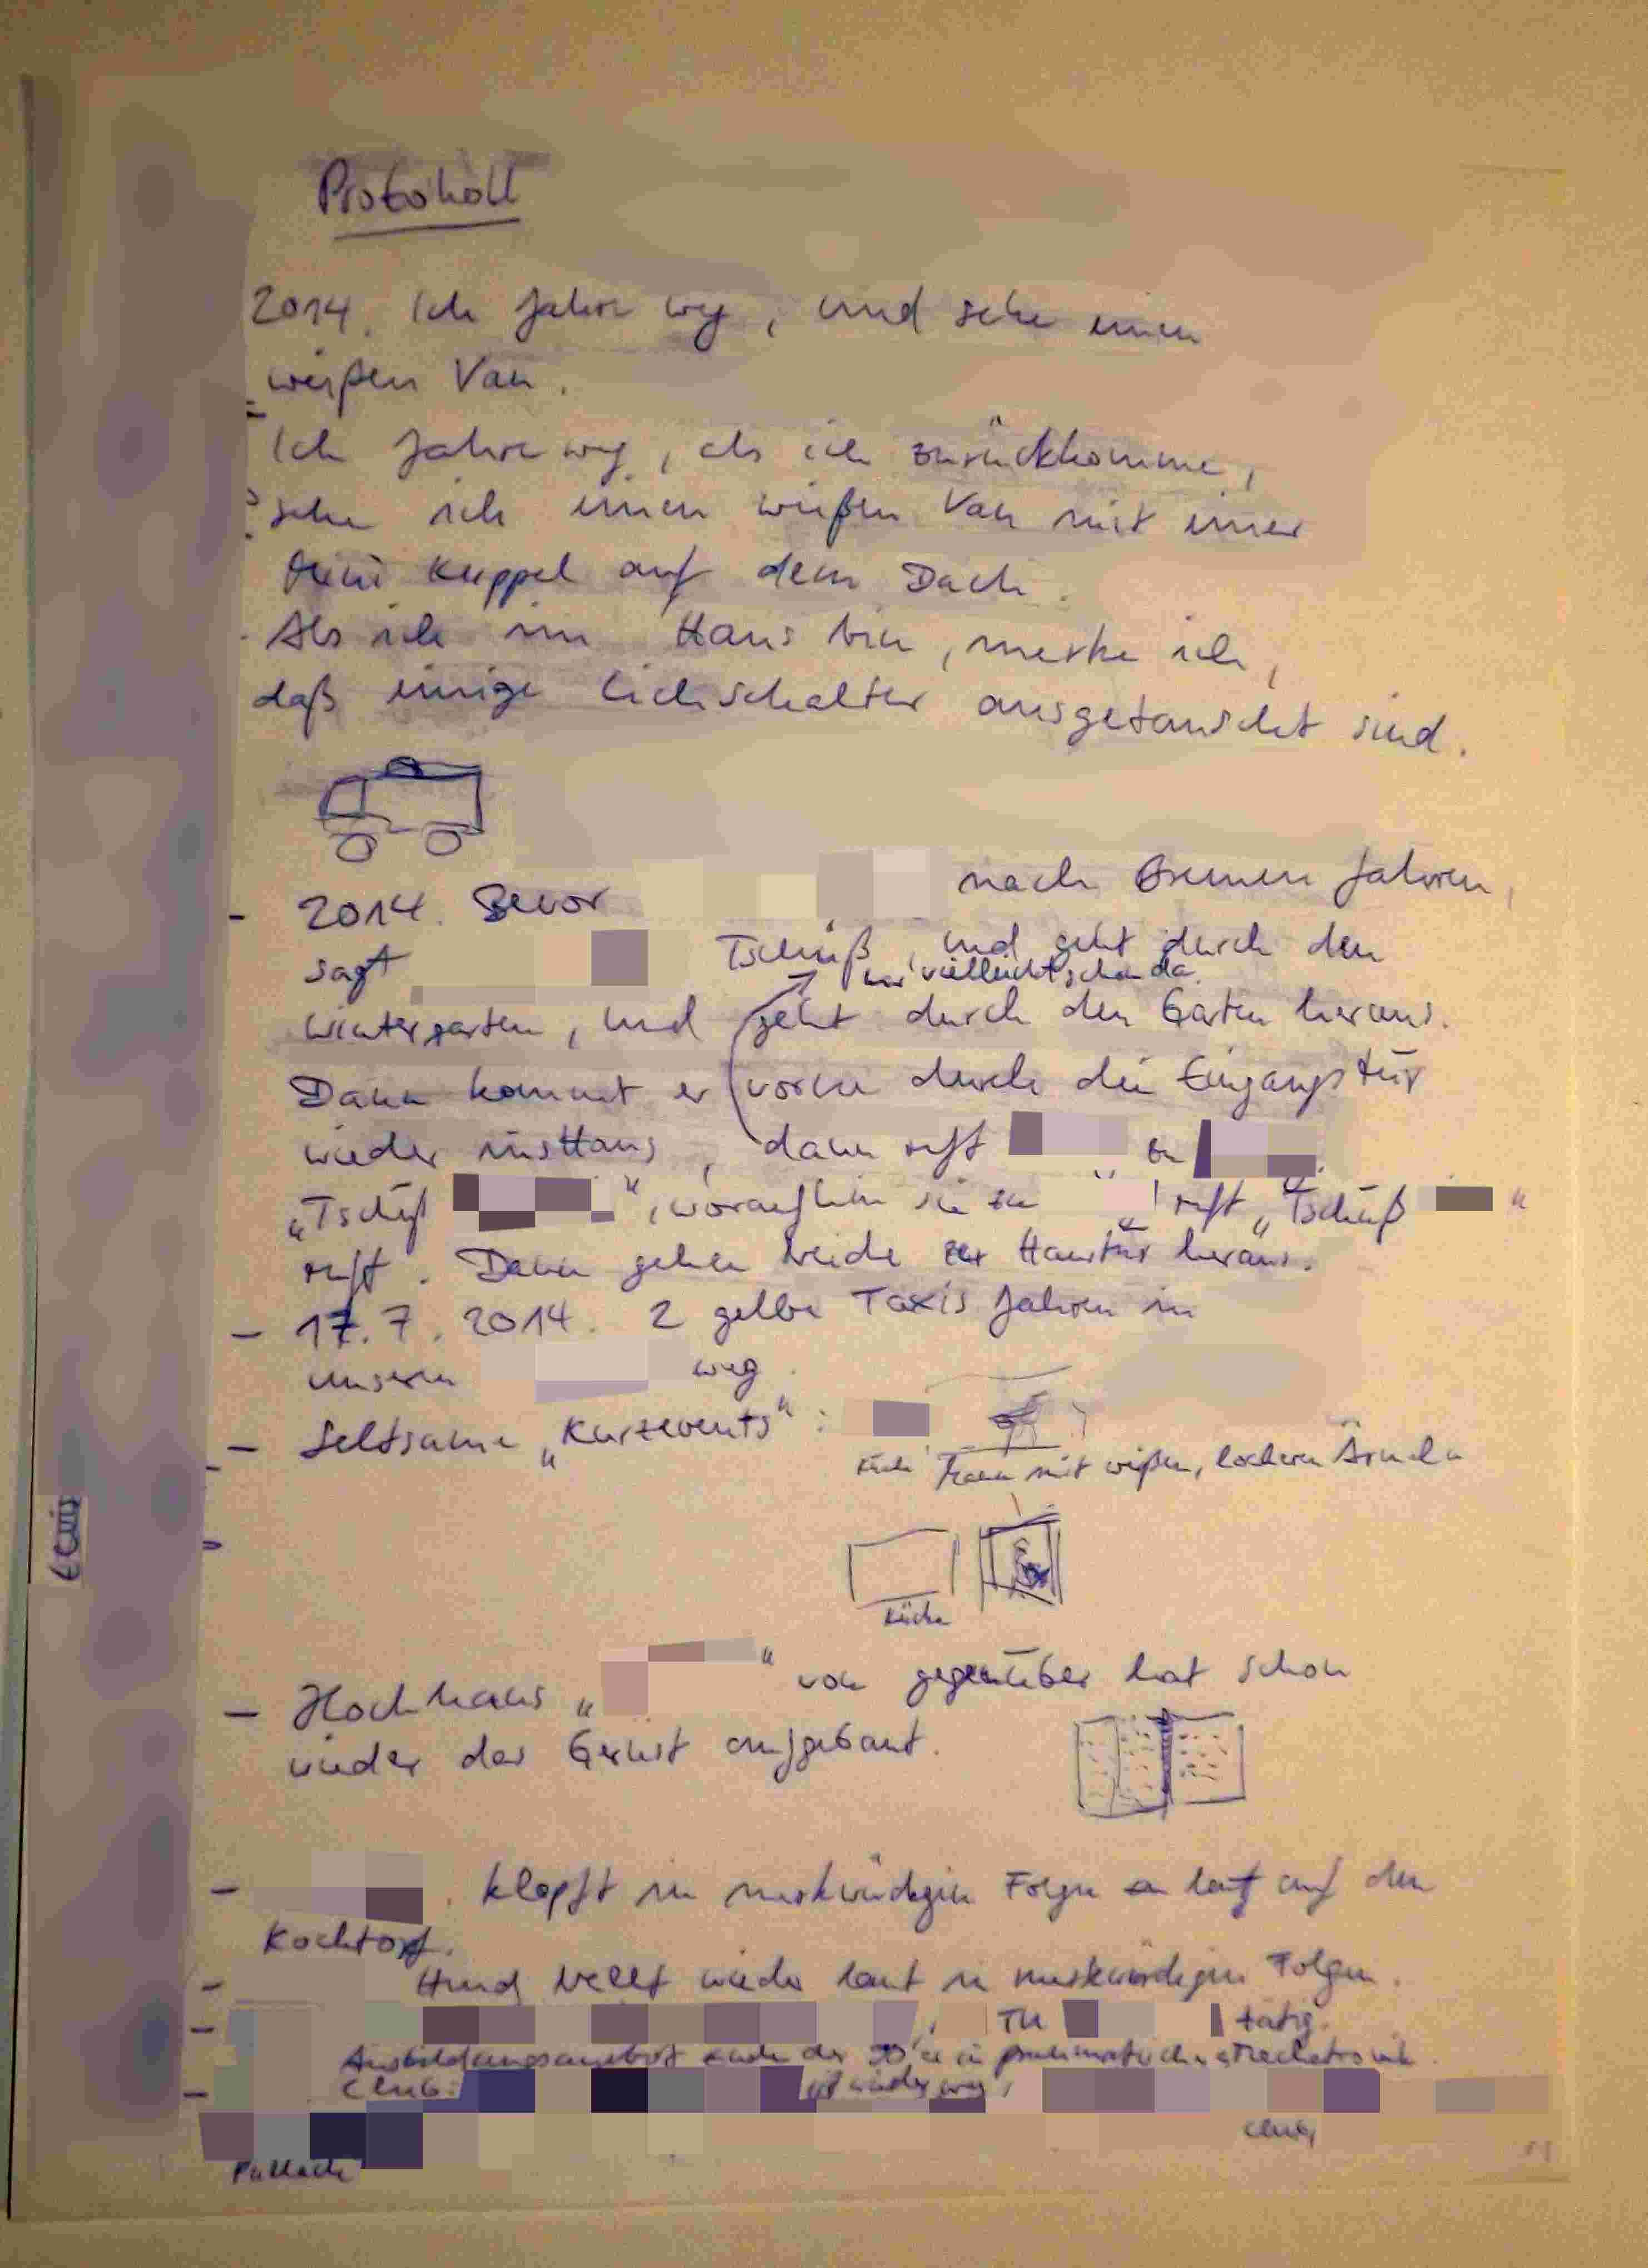 Protokoll
2014. Ich fahre weg, und sehe einen
weißen Van.
Ich fahre weg, als ich zurückkomme,
sehe ich einen weißen Van mit einer
Kuppel auf dem Dach.
Als ich im Haus bin, merke ich,
daß einige Lichschalter ausgetauscht sind.
- 2014. Bevor nach Bremen fahren,
sagt Tschüß, und geht durch den
war vielleicht schon da.
Wintergarten, und geht durch den Garten heraus.
Dann kommt er vorne durch die Eingangstür
wieder ins Haus, dann ruft zu
„Tschüß “, woraufhin sie zu ruft „Tschüß “
ruft. Dann gehen beide zur Haustür heraus.
- 17.7.2014. 2 gelbe Taxis fahren in
unseren weg.
- Seltsame „Kurzevents“:
Küche Frau mit weißen, lockeren Ärmeln
Küche
- Hochhaus „ “ von gegenüber hat schon
wieder das Gerüst aufgebaut.
- klopft in merkwürdigen Folgen laut auf den
Kochtopf.
- Hund bellt wieder laut in merkwürdigen Folgen.
- TU tätig.
Ausbildungsangebot Ende der 90'er in
- Club: ist wieder weg,
Club,
Pullach